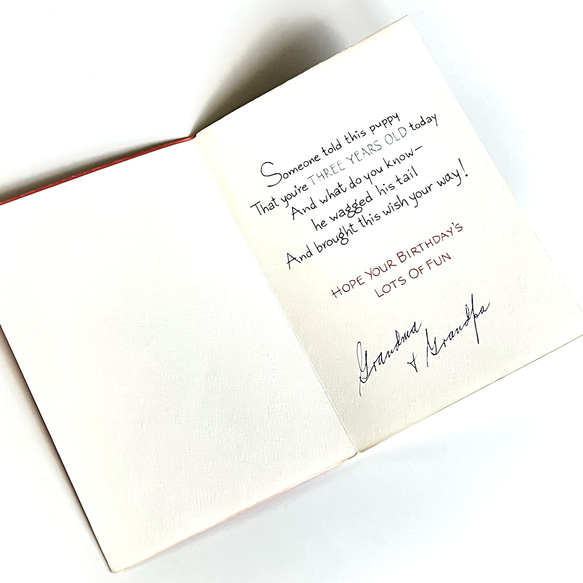 Someone told this puppy
That you're THREE YEARS OLD today
And what do you know—
he wagged his tail
And brought this wish your way!
HOPE YOUR BIRTHDAY'S
LOTS OF FUN
Grandma
+ Grandpa